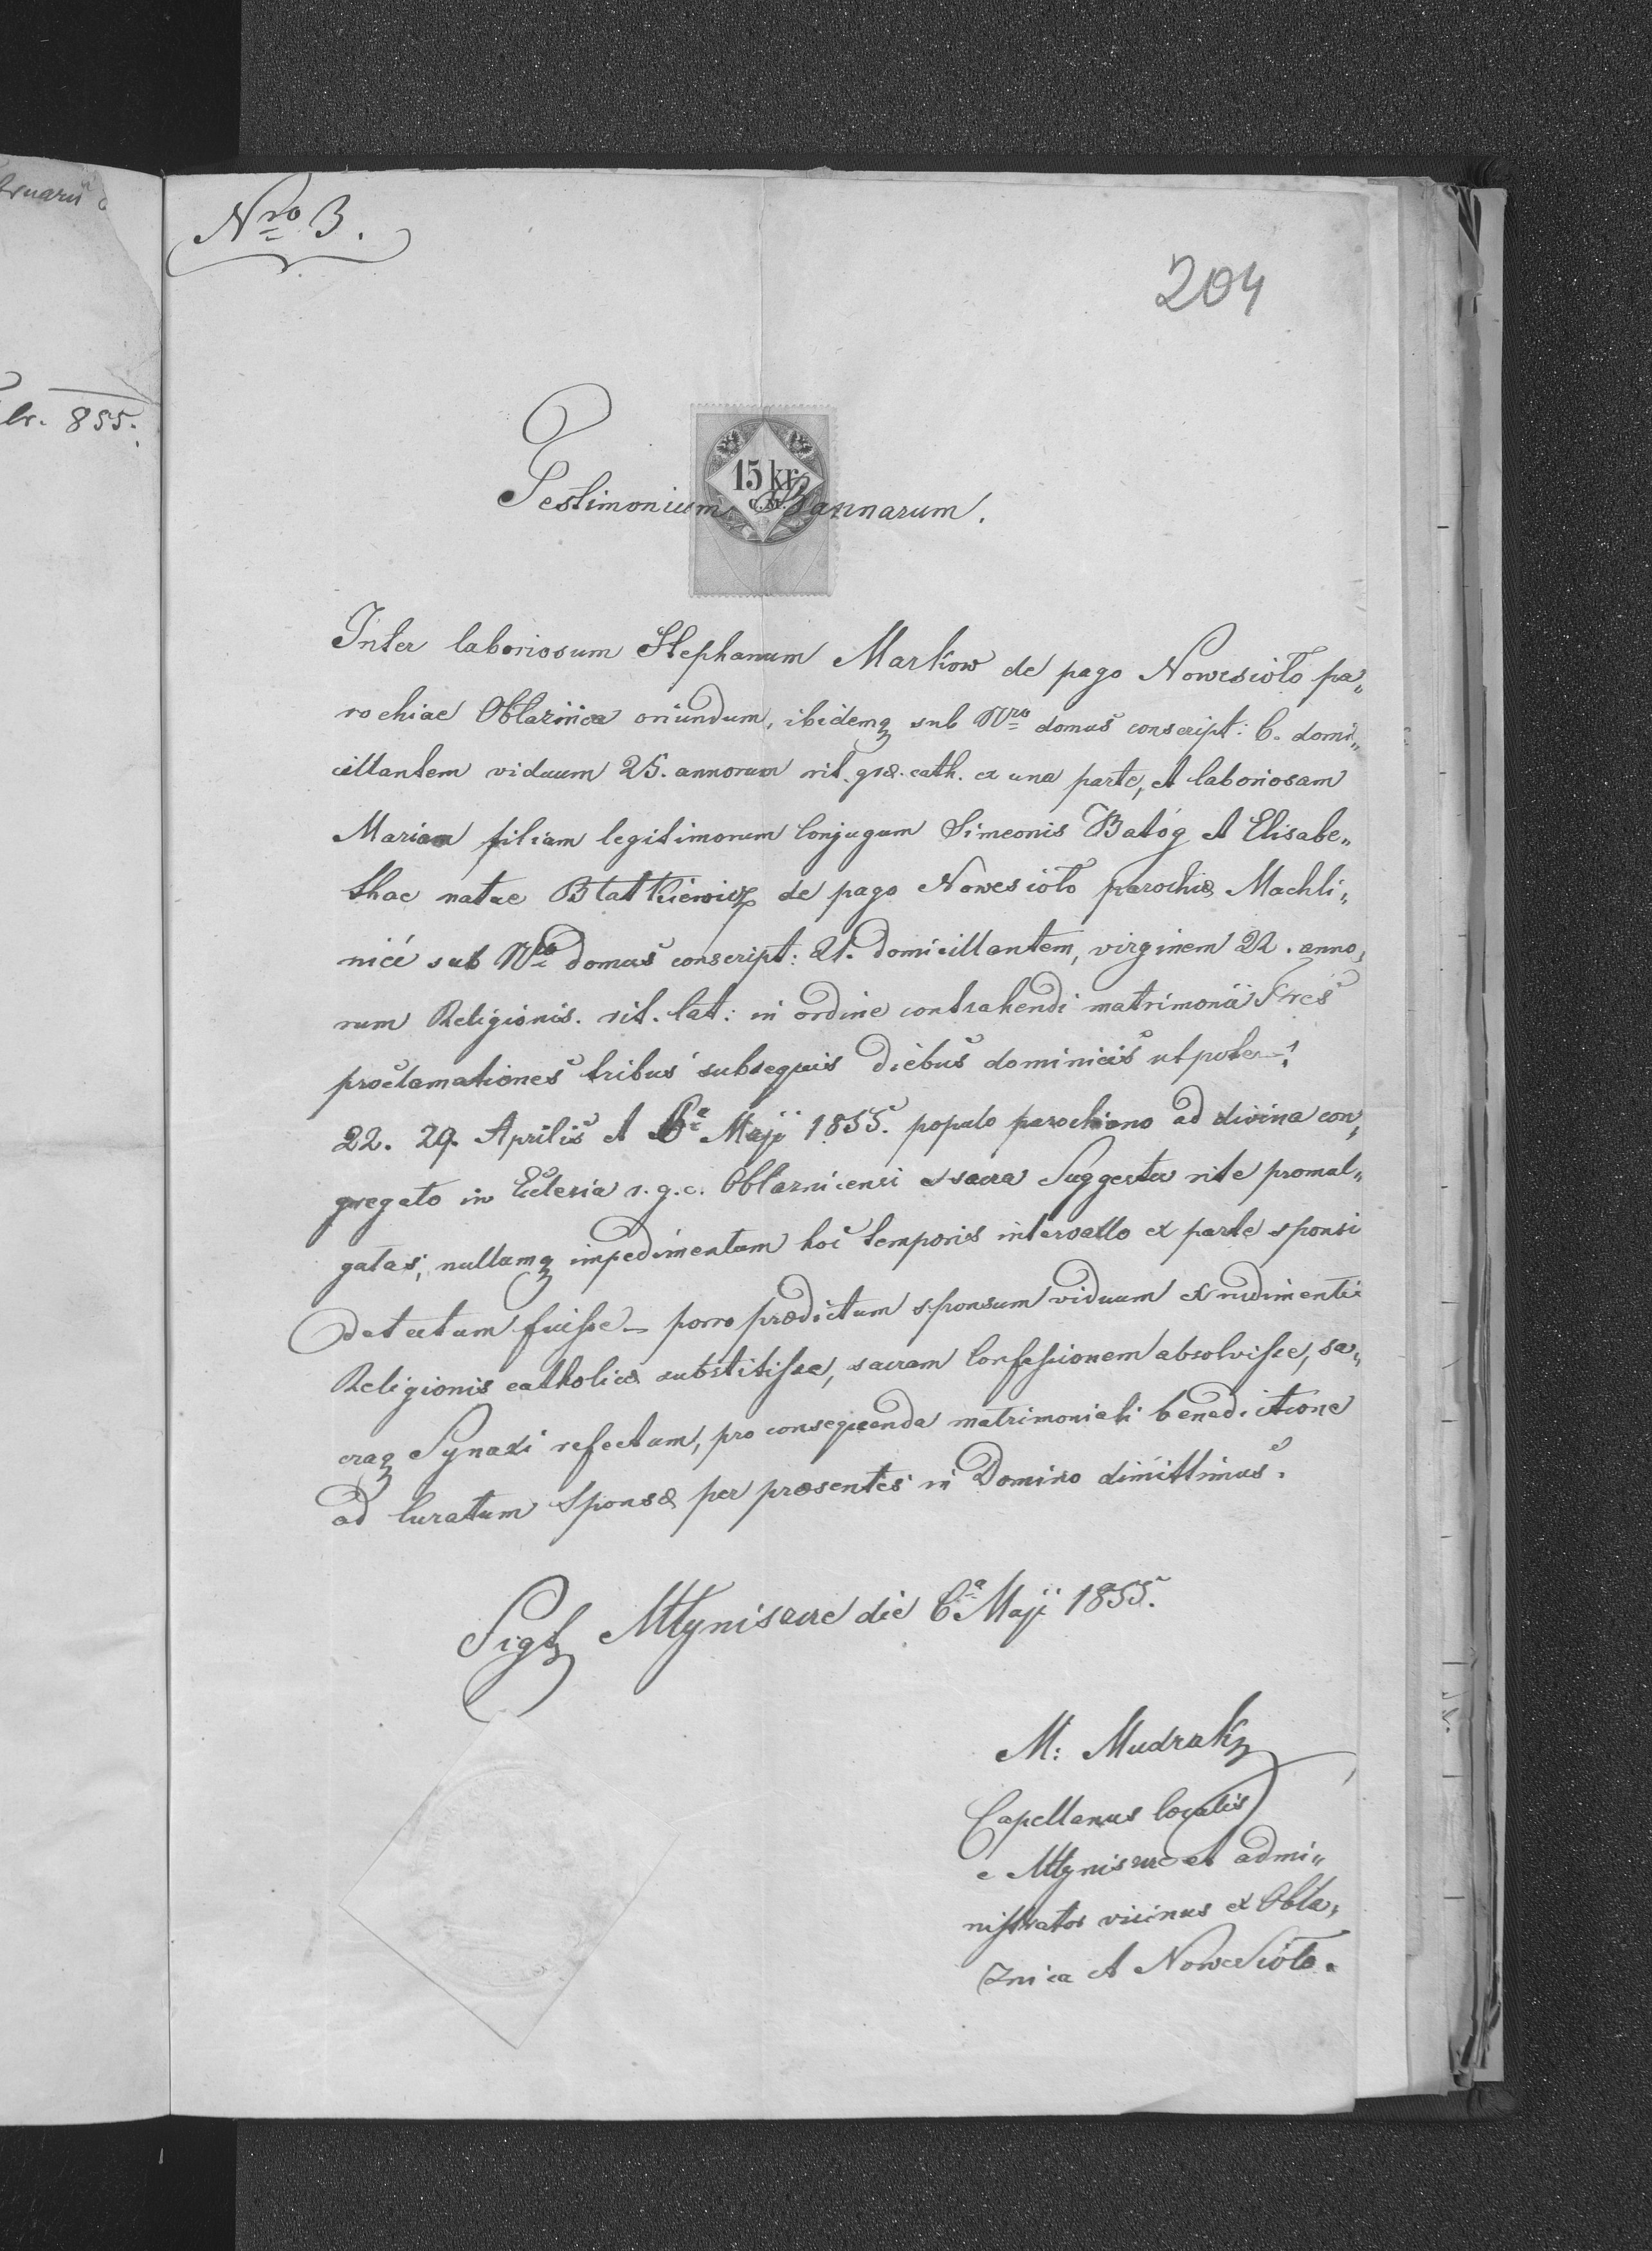 bruarii
Nro 3.
204
br. 855.
15 kr.
C.M.
Testimonium Bannarum.
Inter laboriosum Stephanum Markow de pago Nowesioło pa„
rochiae Obłaznica oriundum, ibidemq sub Nro domus conscript: 6. domi„
cillantem viduum 25. annorum rit. græ. cath. ex una parte, et laboriosam
Mariam filiam legitimorum Conjugum Simeonis Batóg et Elisabe„
thae natae Blatkiewicz de pago Nowesioło parochiæ Machli„
nice sub Nro domus conscript: 21. domicillantem, virginem 22. anno„
rum Religionis. rit. lat: in ordine contrahendi matrimonii Tres
proclamationes tribus subsequis diebus dominicis utpote:
22. 29. Aprilis et 6a Maji 1855. populo parochiano ad divina con„
gregato in Eclesia r. g. c. Obłaznicensi e sacra Suggestu rite promul„
gatas, nullumq impedimentum hoc temporis intervallo ex parte sponsi
detectum fuisse – porro prædictum sponsum viduum ex rudimentis
Religionis catholicæ substitisse, sacram Confessionem absolvisse, sa„
craq Synaxi refectum, pro consequenda matrimoniali benedictione
ad Curatum Sponsæ per præsentes in Domino dimittimus.
Sigt Młyniscze die 6a Maji 1855.
M: Mudrak
Capellanus localis
e Młyniscze et admi„
nistrator vicinus ex Obła„
znica et Nowesioło.